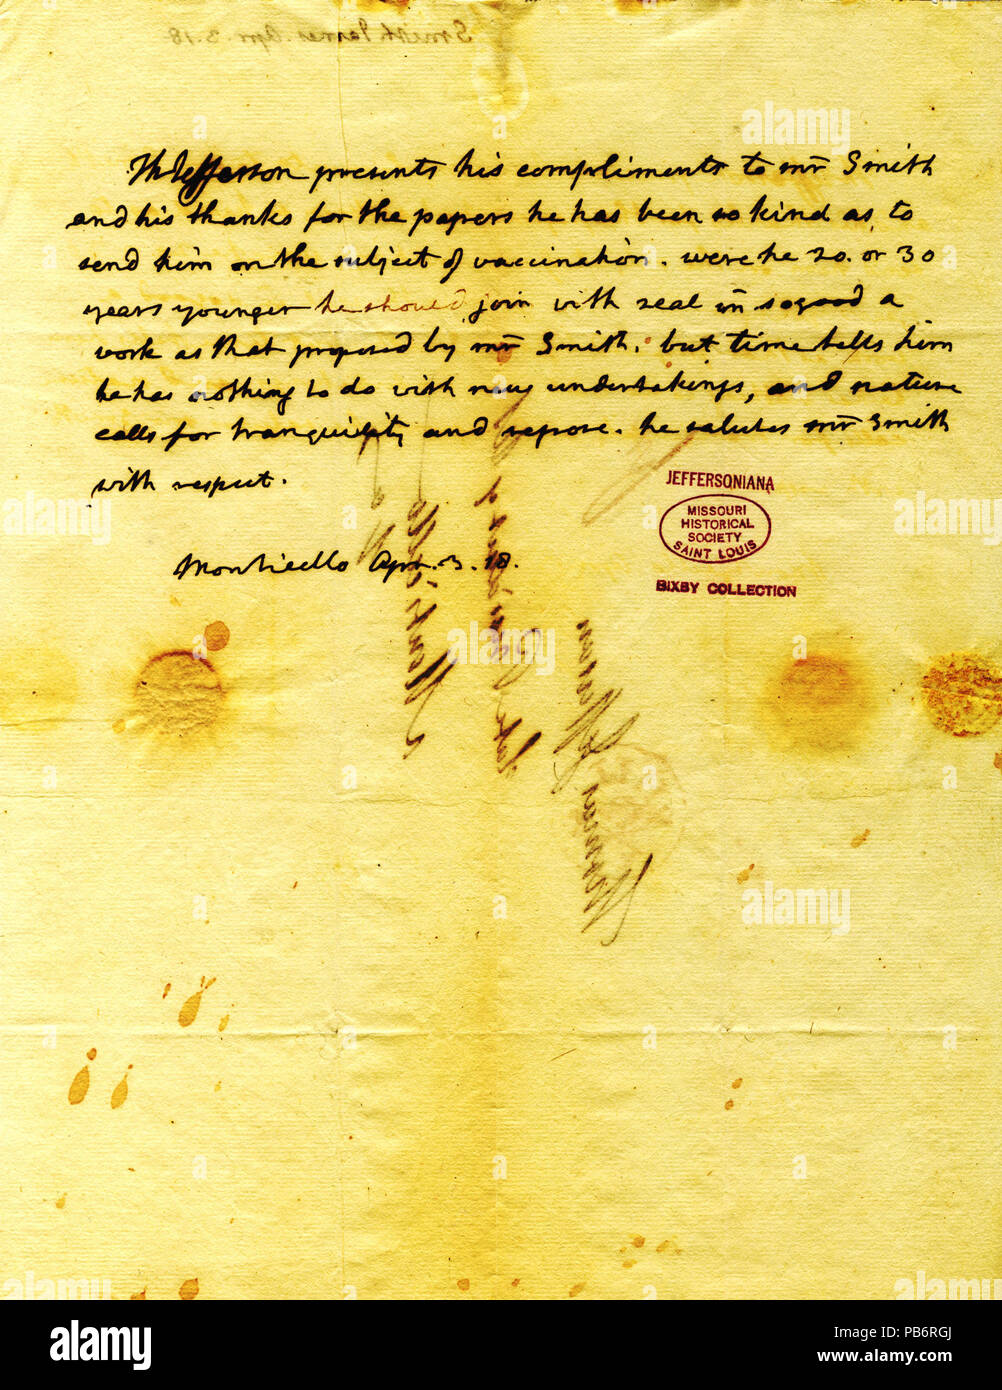 Smith James. Apr. 3. 18
Th Jefferson presents his compliments to mr Smith
and his thanks for the papers he has been so kind as to
send him on the subject of vaccination. were he 20. or 30
years younger he should join with zeal in so good a
work as that proposed by mr Smith. but time tells him
he has nothing to do with new undertakings, and nature
calls for tranquility and repose. he salutes mr Smith
with respect.
JEFFERSONIANA
MISSOURI
HISTORICAL
SOCIETY
SAINT LOUIS
BIXBY COLLECTION
Monticello Apr. 3. 18.
Thomas Jefferson
alamy
Image ID: PB6RGJ
www.alamy.com